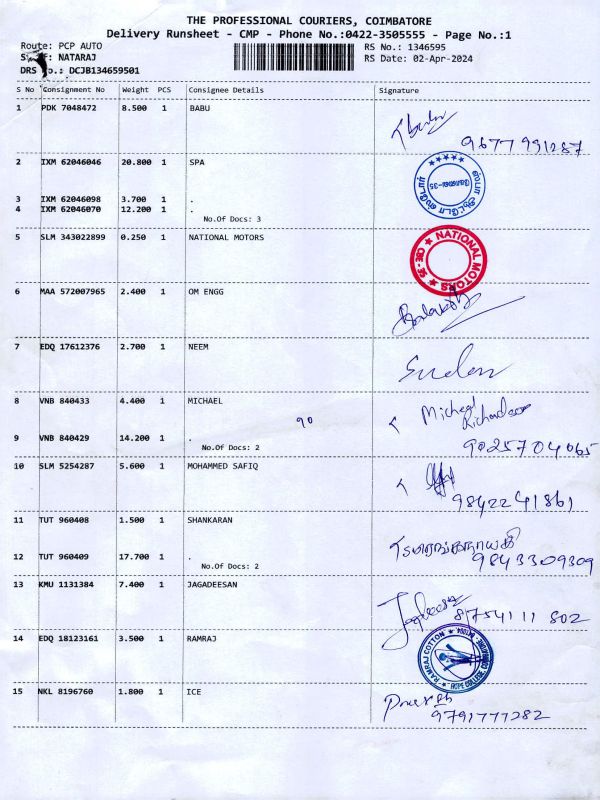 THE PROFESSIONAL COURIERS, COIMBATORE
Delivery Runsheet - CMP - Phone No.:0422-3505555 - Page No.:1
Route: PCP AUTO
RS No.: 1346595
NATARAJ
RS Date: 02-Apr-2024
DRS No.: DCJB134659501
S No Consignment No Weight PCS Consignee Details Signature
1 PDK 7048472 8.500 1 BABU
9677991287
2 IXM 62046046 20.800 1 SPA
3 IXM 62046098 3.700 1 .
4 IXM 62046070 12.200 1 .
No.Of Docs: 3
5 SLM 343022899 0.250 1 NATIONAL MOTORS
NATIONAL MOTORS
CBE-35
6 MAA 572007965 2.400 1 OM ENGG
7 EDQ 17612376 2.700 1 NEEM
8 VNB 840433 4.400 1 MICHAEL
90
9 VNB 840429 14.200 1 .
No.Of Docs: 2
9025704065
10 SLM 5254287 5.600 1 MOHAMMED SAFIQ
9842241861
11 TUT 960408 1.500 1 SHANKARAN
12 TUT 960409 17.700 1 .
No.Of Docs: 2
9843309309
13 KMU 1131384 7.400 1 JAGADEESAN
8754111802
14 EDQ 18123161 3.500 1 RAMRAJ
RAMRAJ COTTON
HOPE COLLEGE, COIMBATORE
15 NKL 8196760 1.800 1 ICE
9791777282